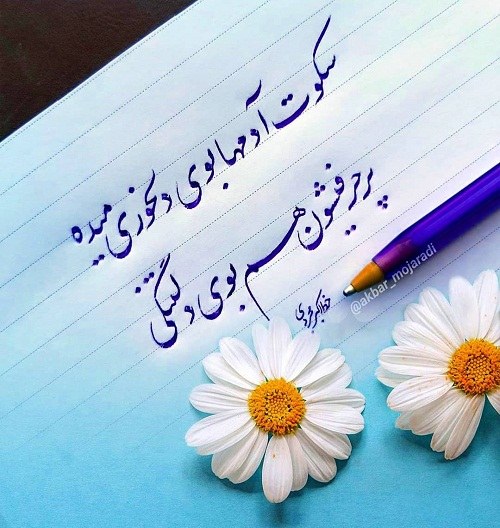 سکوت آدمها بوی دلخوری میده
پرحرفیشون هم بوی دلتنگی
خط اکبر مجردی
@akbar_mojaradi